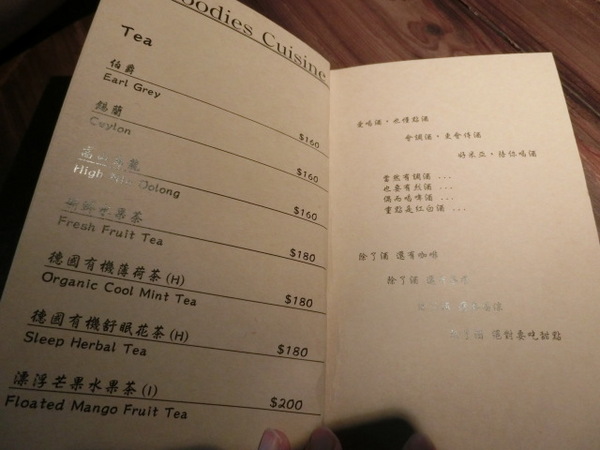 oodies Cuisine
Tea
伯爵
Earl Grey
$160
錫蘭
Ceylon
$160
高山烏龍
High Oolong
$160
新鮮水果茶
Fresh Fruit Tea
$180
德國有機薄荷茶(H)
Organic Cool Mint Tea
$180
德國有機舒眠花茶(H)
Sleep Herbal Tea
$180
漂浮芒果水果茶(I)
Floated Mango Fruit Tea
$200
愛喝酒，也懂點酒
會調酒，更會侍酒
好米亞，陪你喝酒
當然有調酒 ...
也要有烈酒 ...
偶而喝啤酒 ...
重點是紅白酒 ...
除了酒 還有咖啡
除了酒
絕對要吃甜點